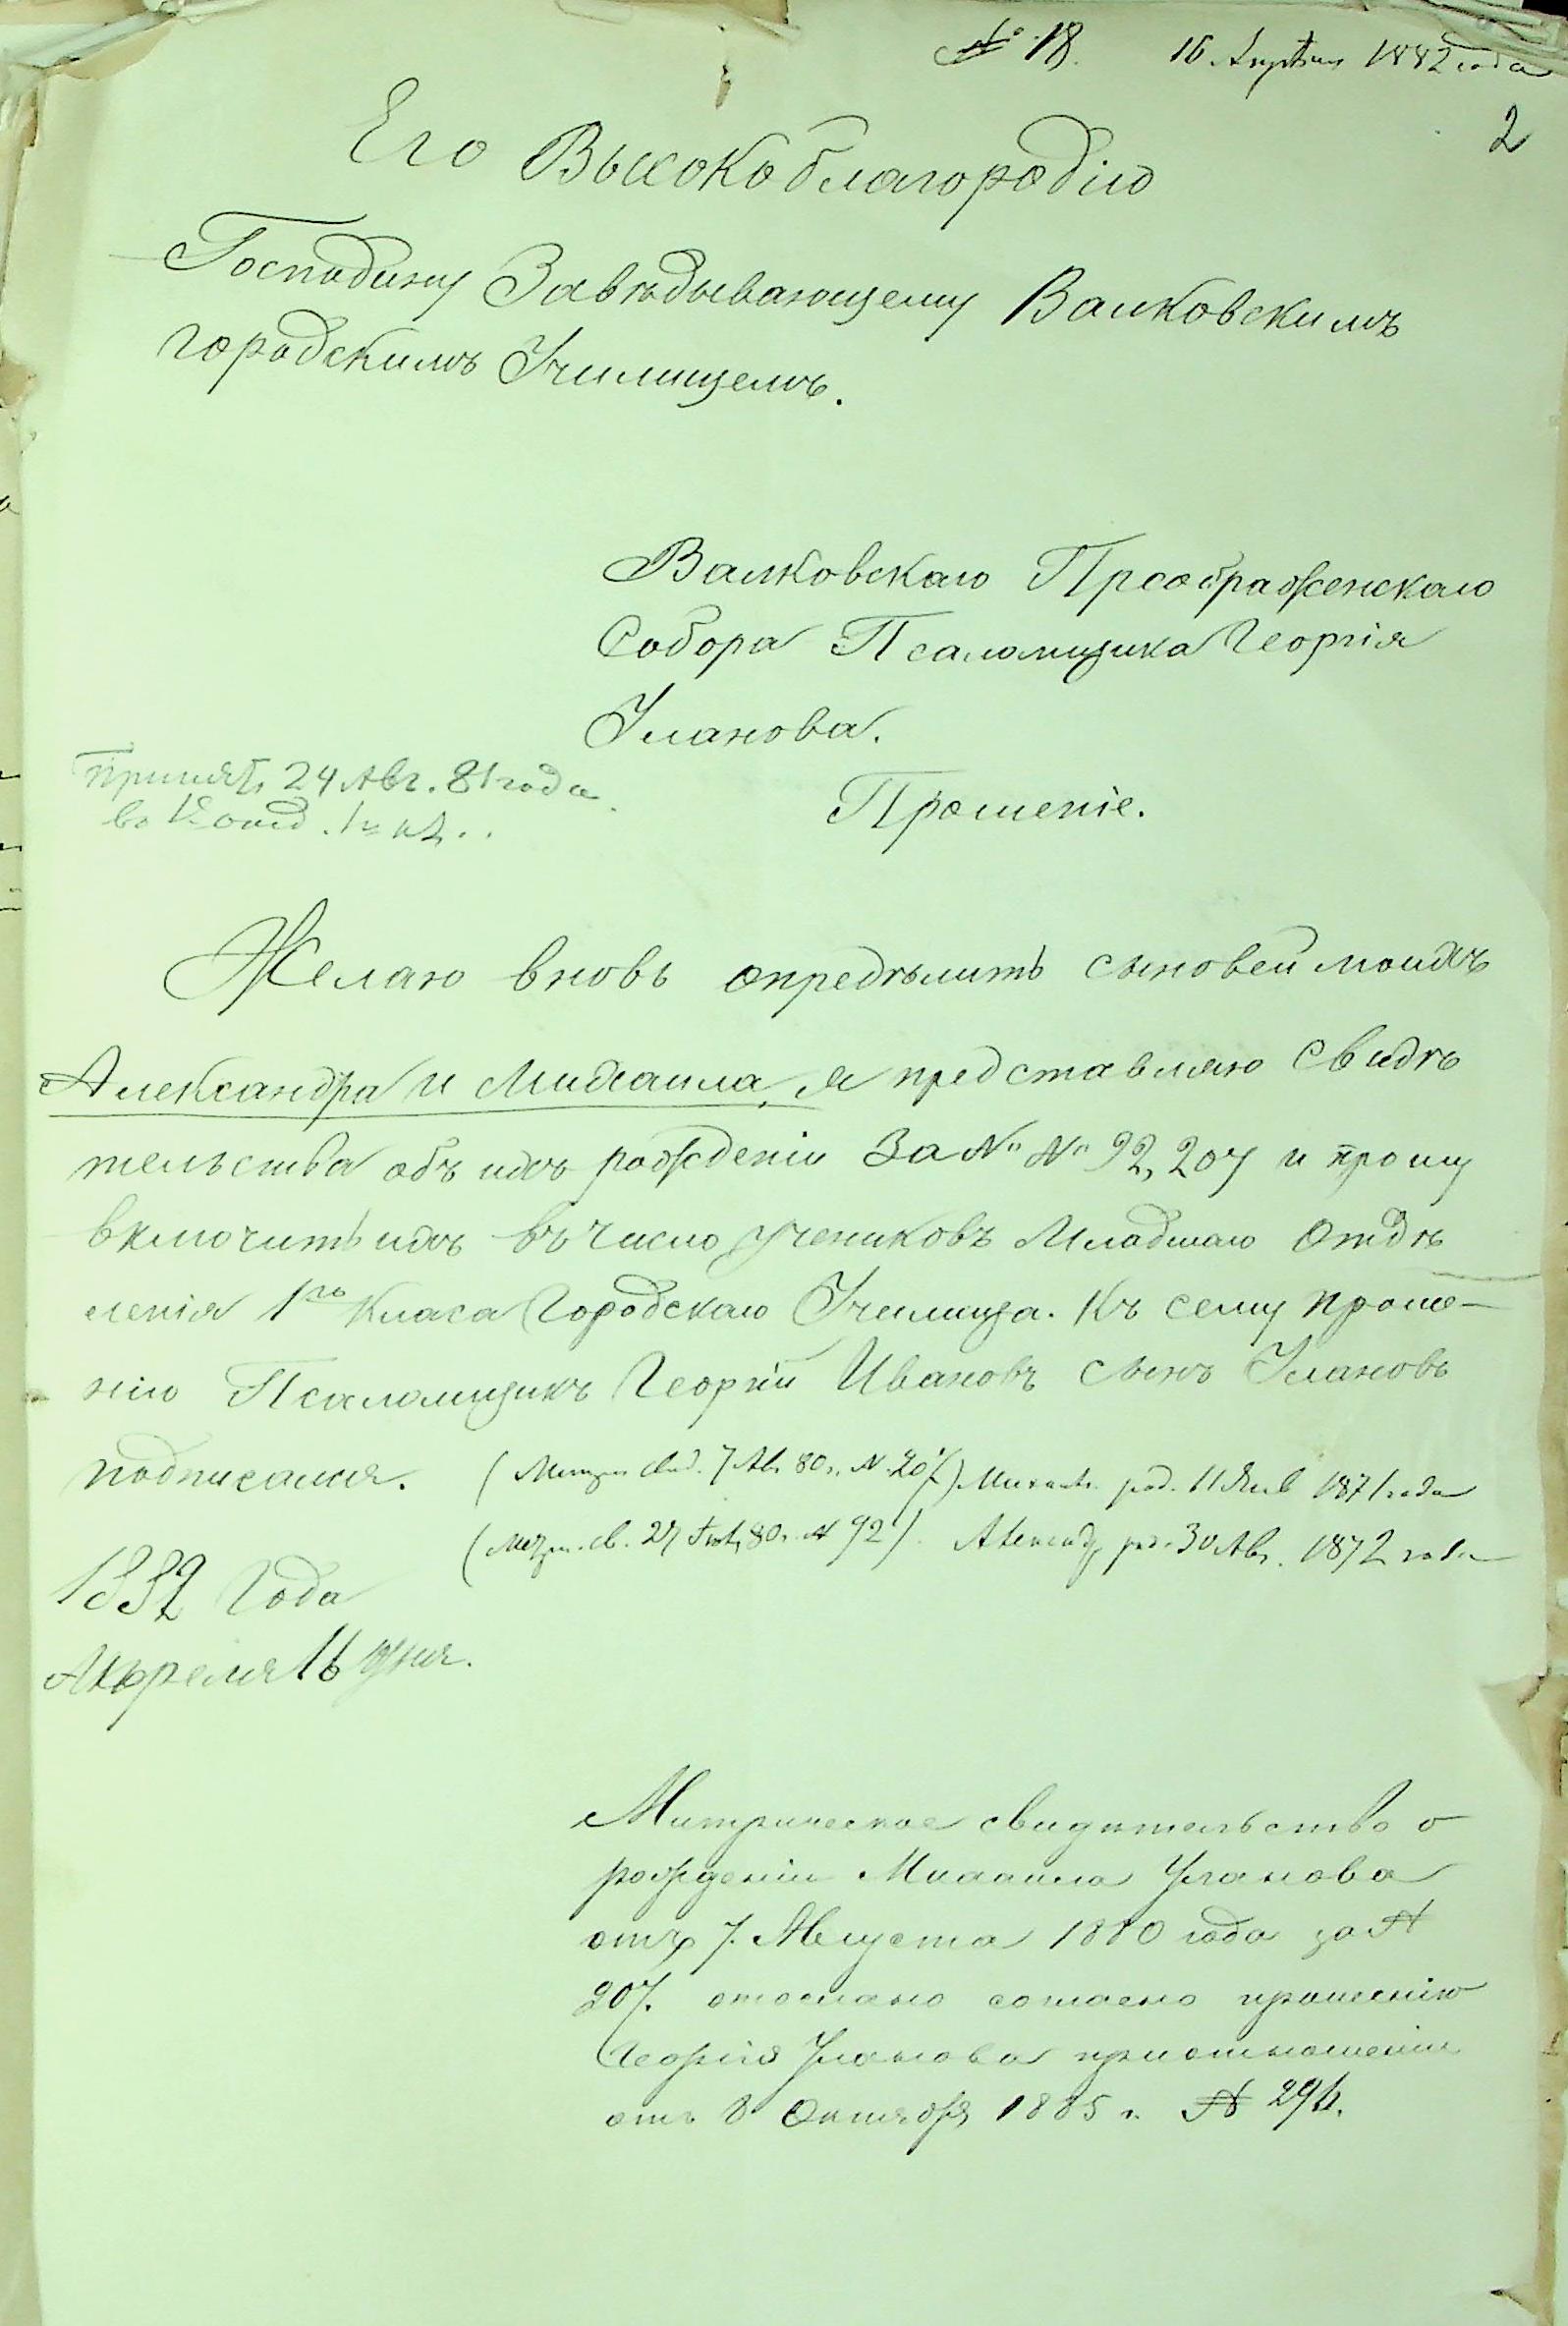 № 18. 16 Апрѣля 1882 года
2
Его Высокоблагородію
Господину Завѣдывающему Валковскимъ
городскимъ Училищемъ.
Валковскаго Преображенскаго
Собора Псаломщика Георгія
Уланова.
Принятъ 24 Авг. 81 года
во отд. 1го кл.
Прошеніе.
Желаю вновь опредѣлить сыновей моихъ
Александра и Михаила, я представляю свидѣ
тельства объ ихъ рожденіи За №№ 92, 207 и прошу
включить ихъ въ число Учениковъ Младшаго Отдѣ
ленія 1го Класа Городскаго Училища. Къ сему проше-
нію Псаломщикъ Георгій Ивановъ сынъ Улановъ
подписался.
(Метрич. свид. 7 Ав. 80 г. № 207) Михаилъ род. 11 Янв 1871 года
(Метр. св. 27 80 г. № 92). Александръ род. 30 Авг. 1872 года
1882 Года
Апреля 16 дня.
Митрическое свидѣтельство о
рожденіи Михаила Уланова
отъ 7. Августа 1880 года за №
207. отослано согласно прошенію
Георгія Уланова при отношеніи
отъ 8 Октября 1885 г. № 296.